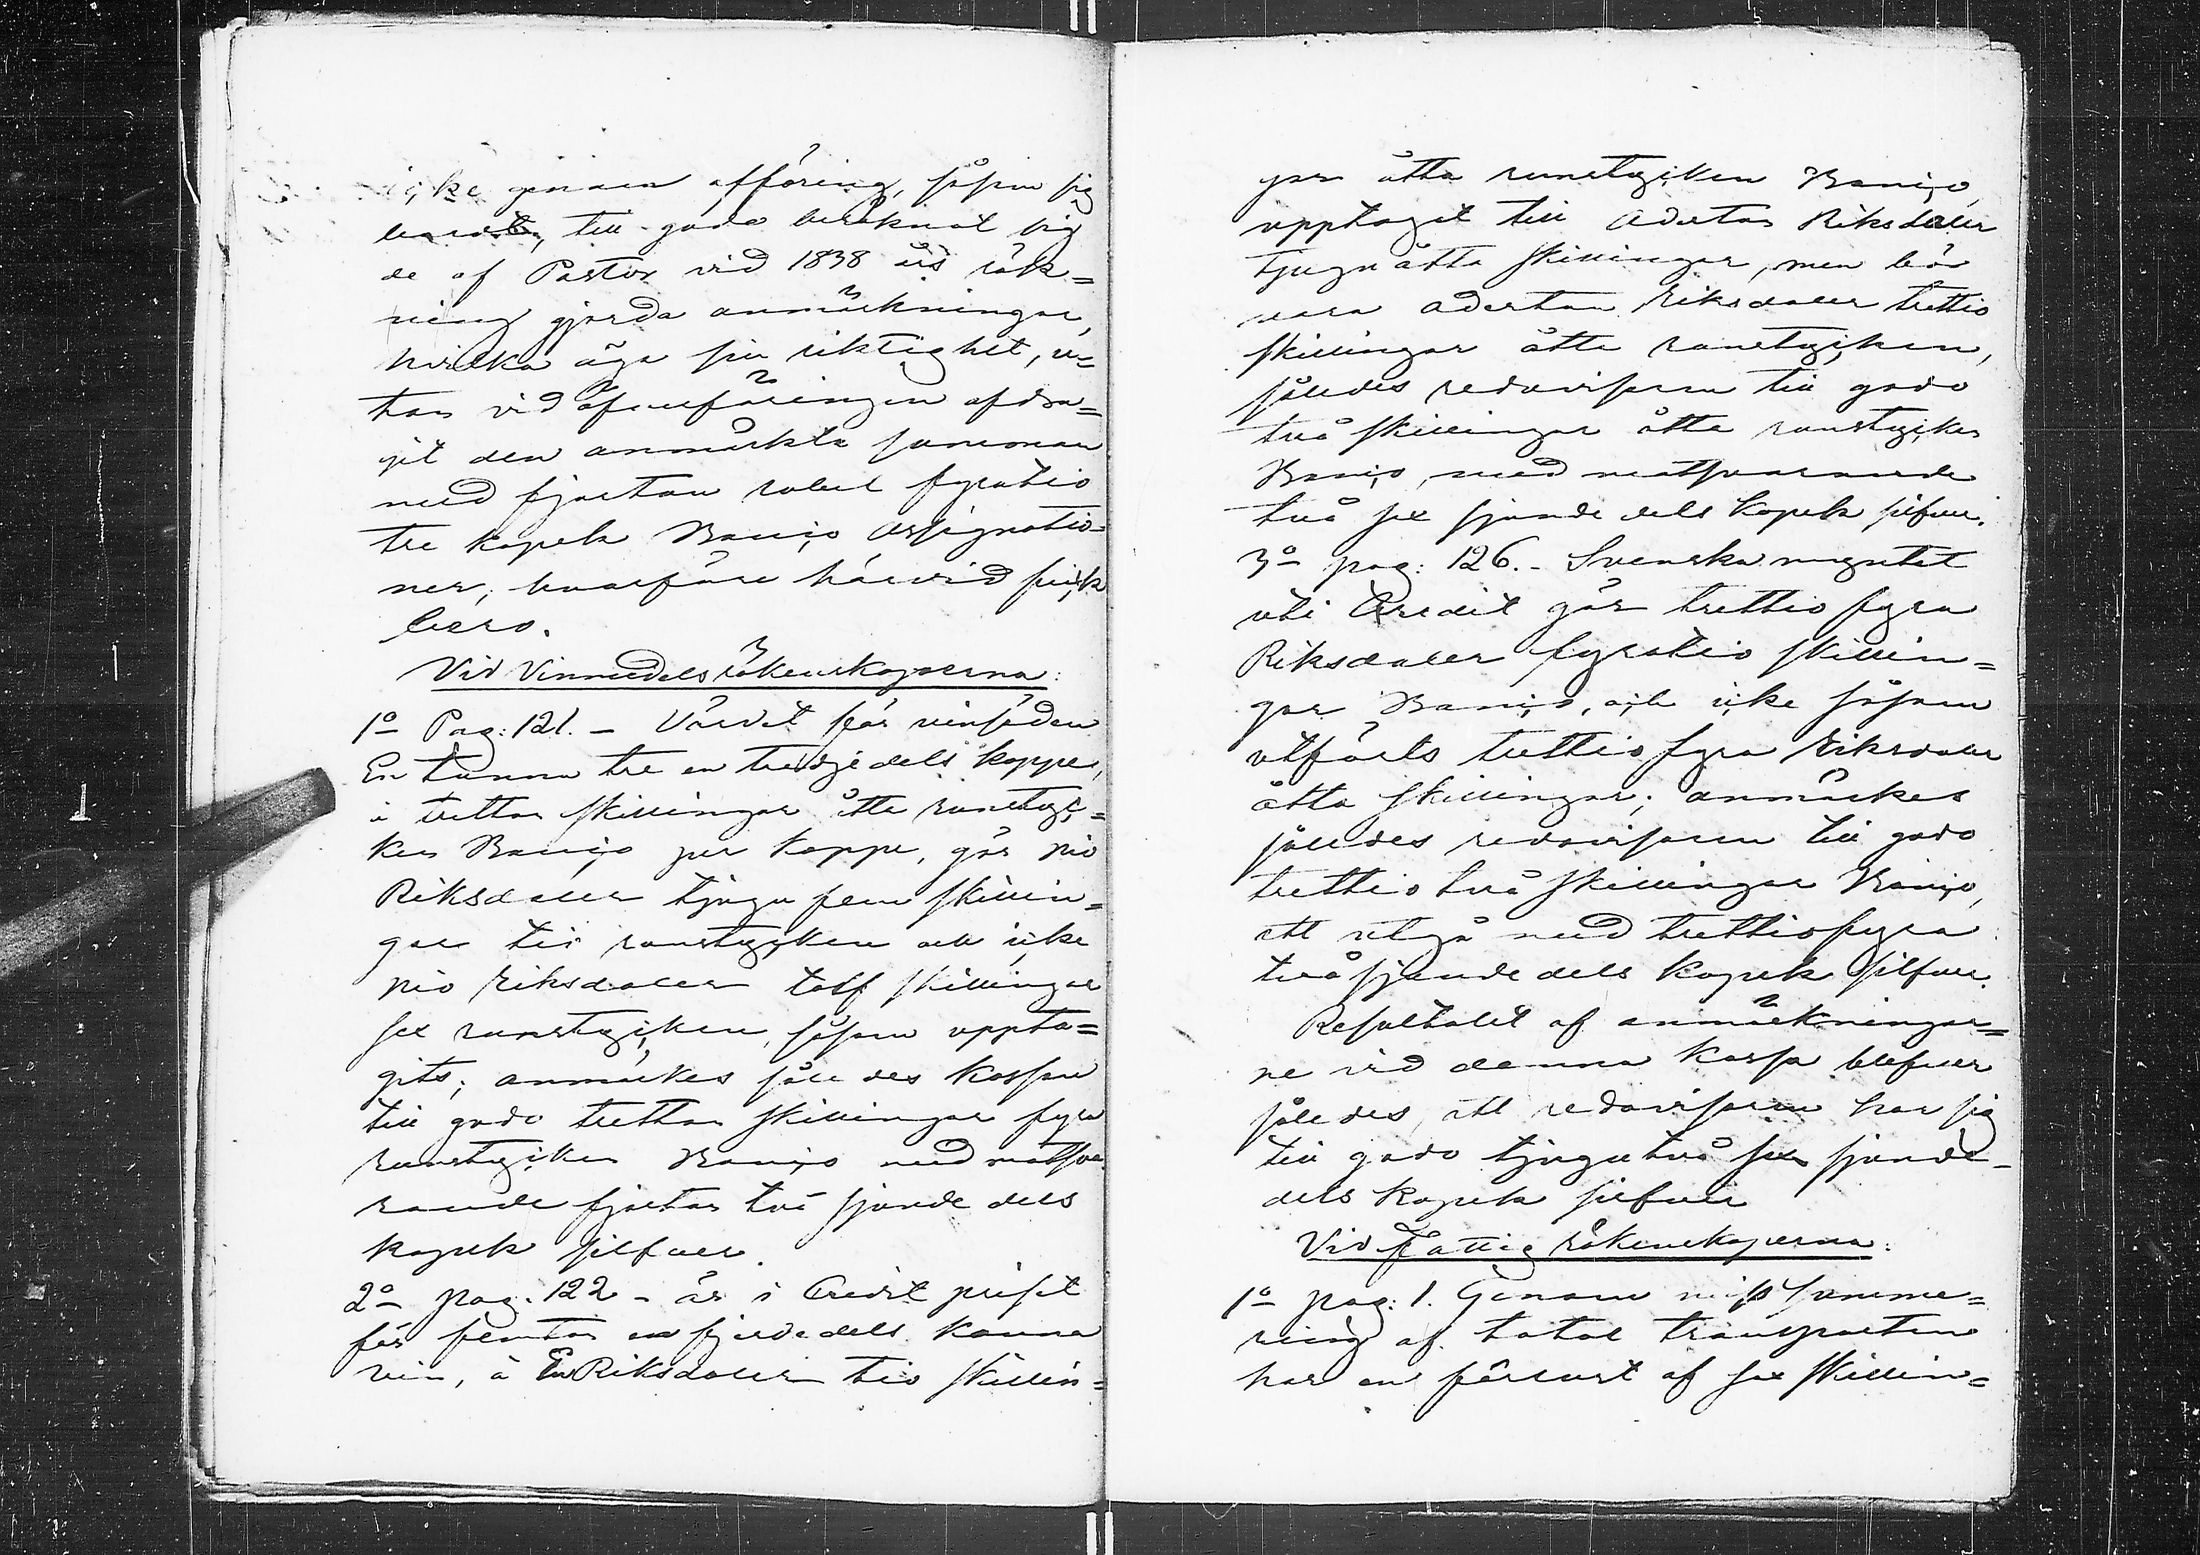 icke genom afföring, såsom sig
bordt, till godo beräknat sig
de af Pastor vid 1838 års räk=
ning gjorda anmärkningar,
hvilka äga sin riktighet, u=
tan vid öfverföringen afdra=
git den anmärkta summan
med fjorton rubel fyratio
tre kopek Banço Assignatio=
ner, hvarföre härvid fick
bero.
Vid Vinmedelsräkenskaperna:
1o Pag: 121. - Värdet för vinsäden
En tunna tre en tredjedels kappe,
à tretton skillingar åtta runstyc=
ken Banço per kappe, gör nio
Riksdaler tjugu fem skillin=
gar tio runstycken och icke
nio Riksdaler tolf skillingar
sex runstycken, såsom uppta=
gits; anmärkes således kassan
till godo tretton skillingar fyra
runstycken Banço med motsva
rande fjorton två sjunde dels
kopek silfver.
2o pag. 122 - är i Credit priset
för femton en fjerdedels kanna
vin, à En Riksdaler tio skillin=
gar åtta runstycken Banço,
upptaget till Aderton Riksdaler
tjugu åtta skillingar, men bör
vara aderton Riksdaler trettio
skillingar åtta runstycken,
således redovisaren till godo
två skillingar åtta runstycken
Banço, med motsvarande
två sex sjunde dels kopek silfver.
3o pag: 126. - Svenska myntet
uti Credit gör trettio fyra
Riksdaler fyratio skillin=
gar Banço, och icke såsom
utförts trettio fyra Riksdaler
åtta skillingar; anmärkes
således redovisaren till godo
trettio två skillingar Banço,
att utgå med trettiofyra
två sjunde dels kopek silfver.
Resultatet af anmärkningar=
ne vid denna kassa blefver
således, att redovisaren har sig
till godo tjugutvå sex sjunde=
dels kopek silfver
Vid Fattig räkenskaperna:
1o pag: 1. Genom miss summe=
ring af total transporten
har en förlust af sex skillin=